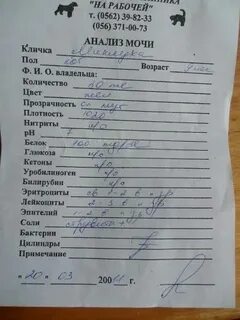 "НА РАБОЧЕЙ"
т. (0562) 39-82-33
(056) 371-00-73
АНАЛИЗ МОЧИ
Кличка
Пол Возраст
Ф. И. О. владельца:
Количество 50 мл
Цвет жел
Прозрачность сл мут
Плотность 1020
Нитриты н/о
pH 7
Белок 100
Глюкоза н/о
Кетоны н/о
Уробилиноген н/о
Билирубин н/о
Эритроциты 1-2 в п/зр
Лейкоциты 2-3 в п/зр
Эпителий 1-2 в п/зр
Соли
Бактерии
Цилиндры
Примечание
"20" 03 200 г.